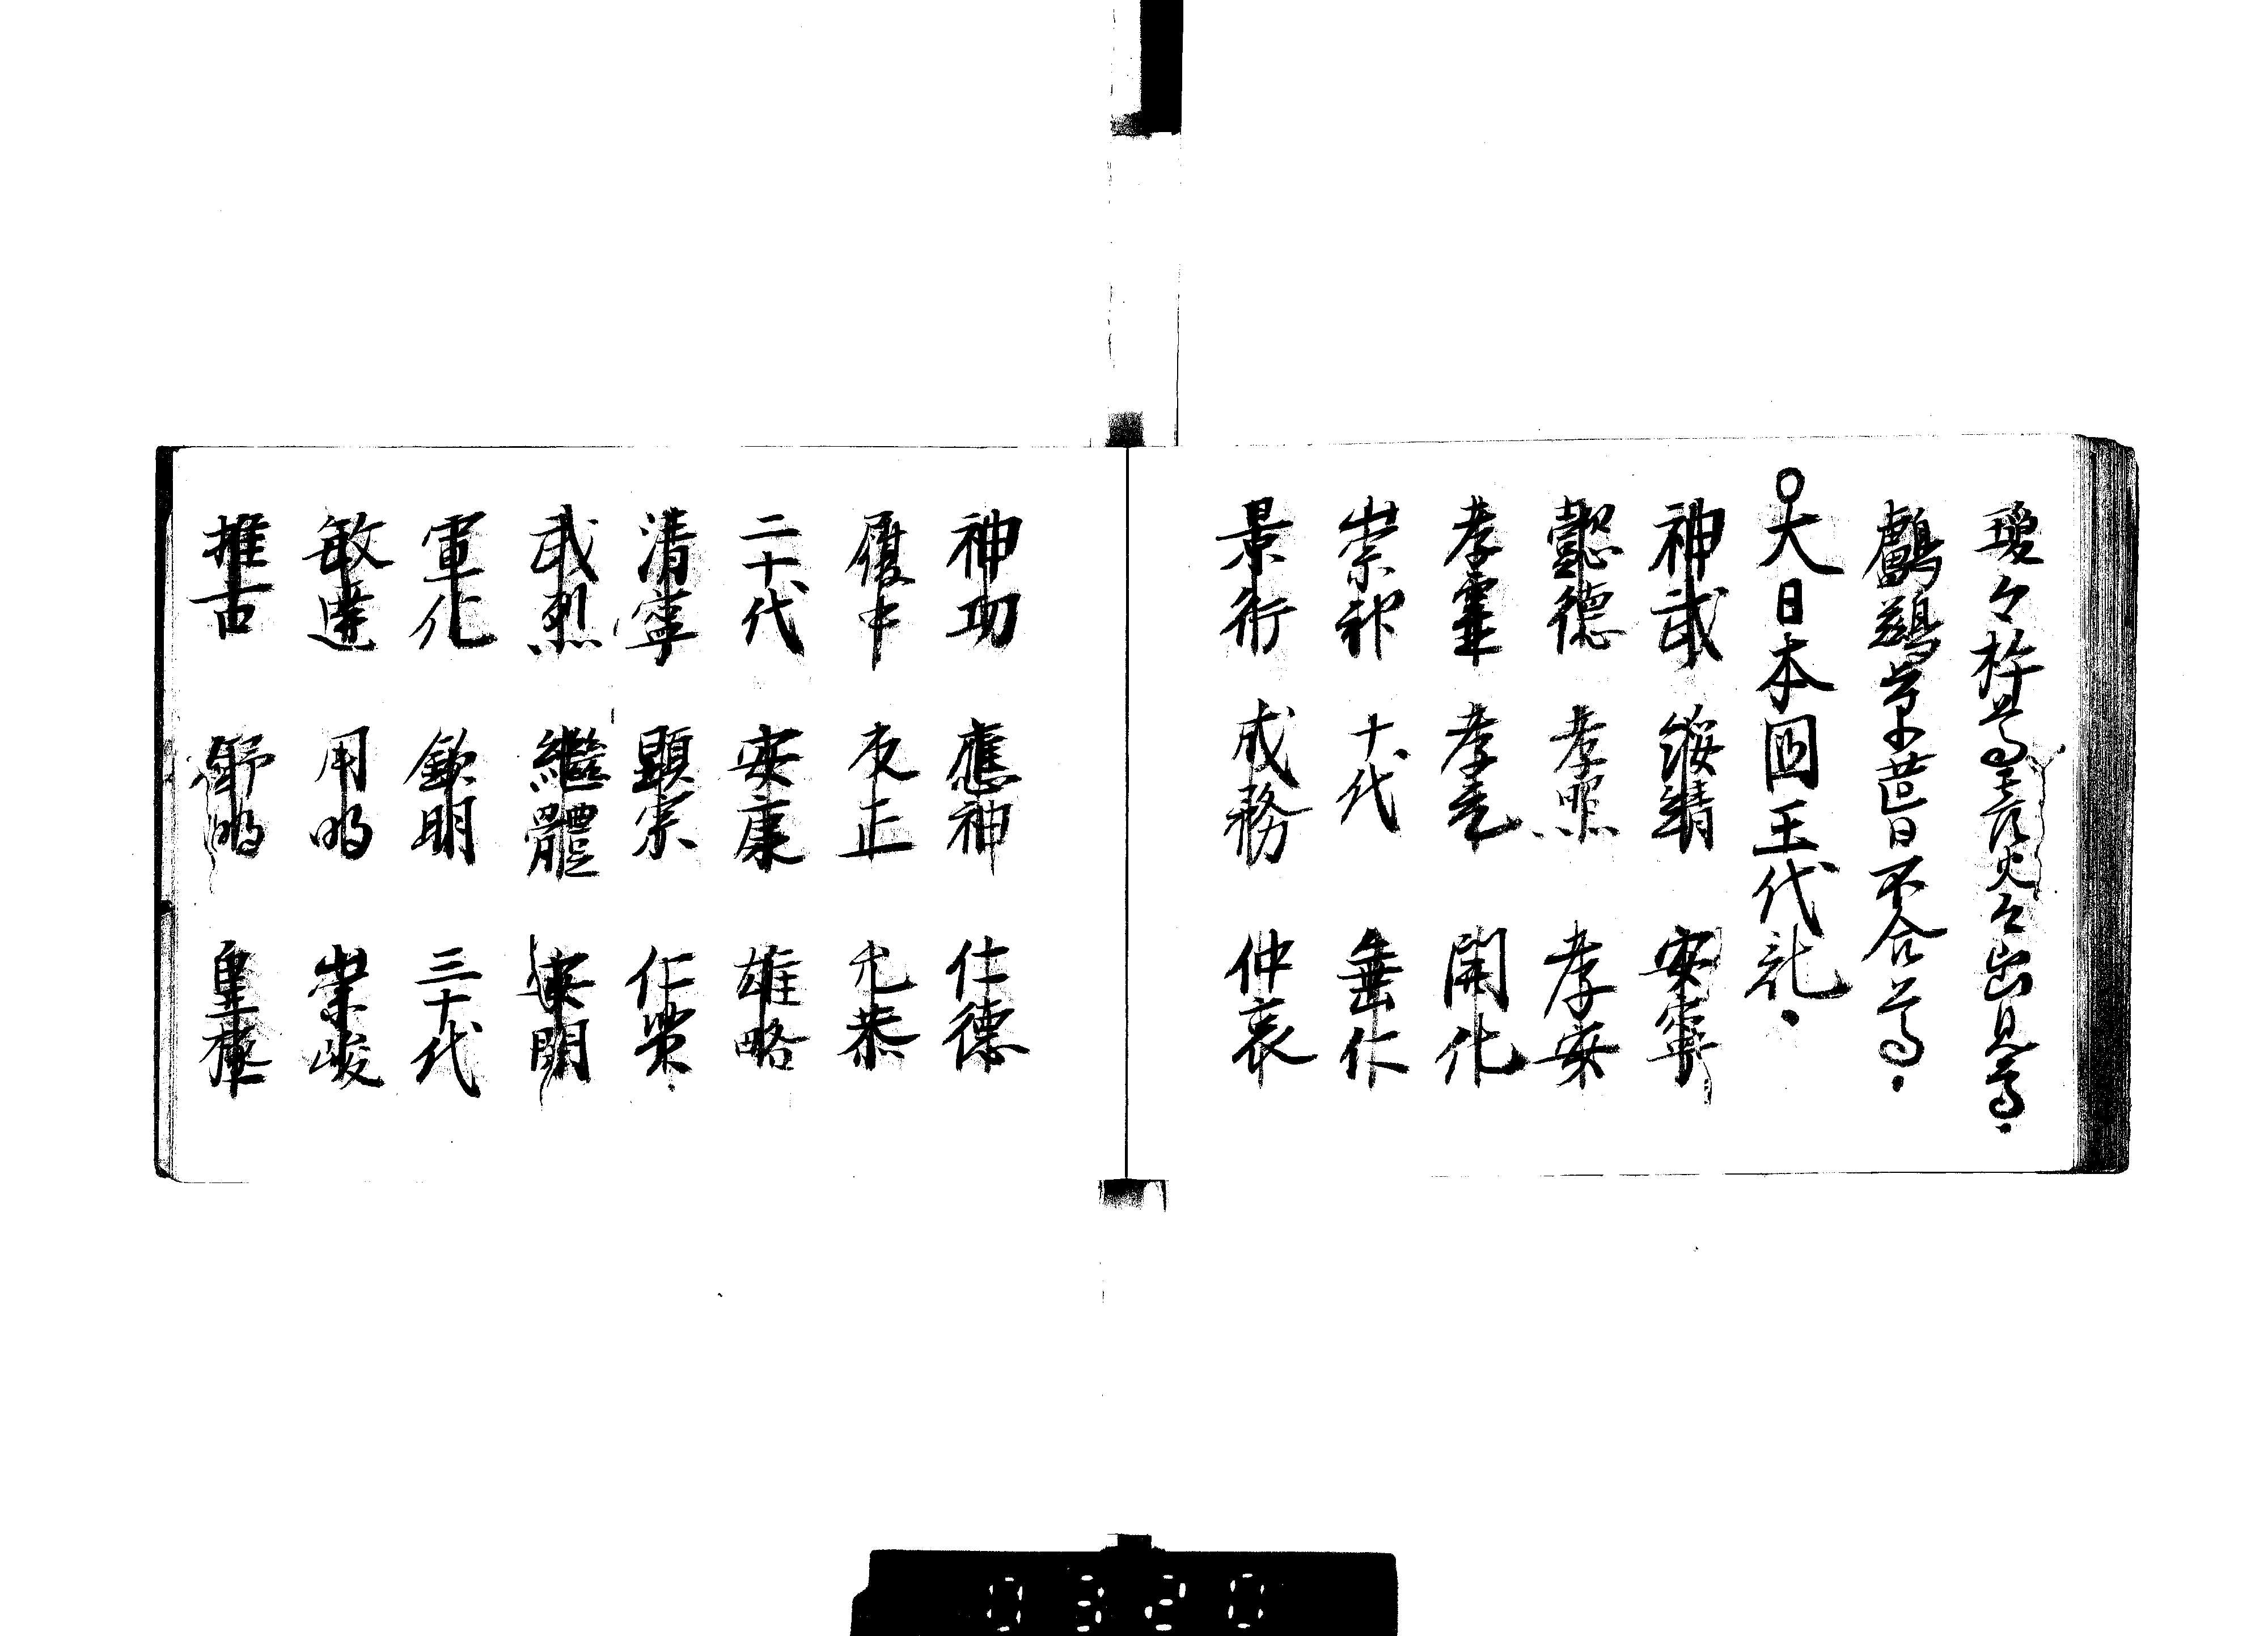 瓊々杵尊 彦火々出見尊.
鸕鷀草葺不合尊.
○大日本國王代記.
神武 綏靖 安寧
懿德 孝照 孝安
孝靈 孝元 開化
崇神 十代 垂仁
景行 成務 仲哀
神功 應神 仁德
履中 反正 允恭
二十代 安康 雄略
清寧 顯宗 仁賢
武烈 繼體 安閑
宣化 欽明 三十代
敏達 用明 崇峻
推古 舒明 皇極
0320